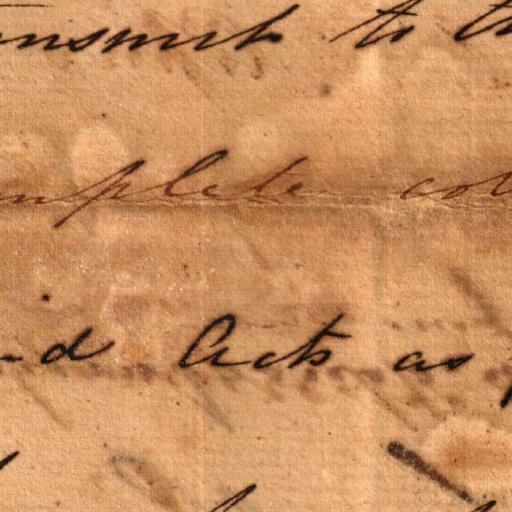 ansmit to th
mplete col
id Acts as